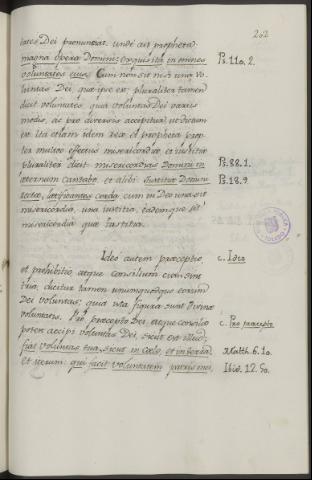 202
tates Dei pronuntiat. unde ait propheta:
magna opera Domini exquisita in omnes
voluntates eius. Cum non sit nisi una vo-
luntas Dei, quæ ipse est; pluraliter tamen
dicit voluntates, quia voluntas Dei variis
modis, ac pro diversis accipitur, ut dictum
est. ita etiam idem propheta prop-
ter multos effectus misericordiæ, et iustitiæ
pluraliter dicit: misericordias Domini in
æternum cantabo. et alibi: Iustitiæ Domini
rectæ, lætificantes corda. cum in Deo una sit
misericordia, una iustitia, eademque sit
misericordia quæ Iustitia.
Ps. 110. 2.
Ps. 88. 1.
Ps. 18. 9.
Ideo autem præceptio,
et prohibitio, atque consilium cum sint
tria, dicitur tamen unumquodque eorum
Dei voluntas; quia ista figura sunt divinæ
voluntatis. Pro præcepto Dei, atque consilio
potest accipi voluntas Dei, sicut est illud;
fiat voluntas tua, sicut in cœlo, et in terra.
et iterum: qui facit voluntatem patris mei,
c. Ideo
c. Pro præcepto
Matth. 6. 10.
Ibid. 12. 50.